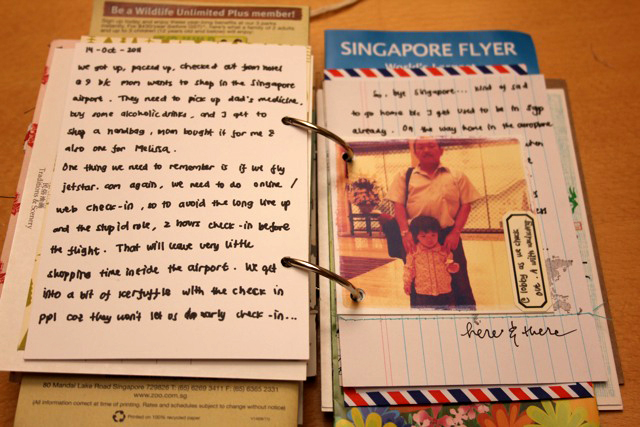 Be a Wildlife Unlimited Plus member!
14-Oct-2011
we got up, packed up, checked out from hotel
@ 9 b/c mom wants to shop in the Singapore
airport. They need to pick up dad's medicine,
buy some alcoholic drinks, and I get to
shop a handbag, mom bought it for me &
also one for Melissa.
One thing we need to remember is if we fly
jetstar.com again, we need to do online /
web check-in, so to avoid the long line up
and the stupid rule, 2 hours check-in before
the flight. That will leave very little
shopping time inside the airport. We get
into a bit of kerfuffle with the check in
ppl coz they won't let us do early check-in...
80 Mandai Lake Road Singapore 729826 T: (65) 6269 3411 F: (65) 6365 2331
www.zoo.com.sg
(All information correct at time of printing. Rates and schedules subject to change without notice)
Printed on 100% recycled paper
Traditions & Scenery
SINGAPORE FLYER
World's Largest
So, bye Singapore... kind of sad
to go home b/c I get used to be in Sgp
already. On the way home in the aeroplane
@ lobby as we check
out. A with
here & there